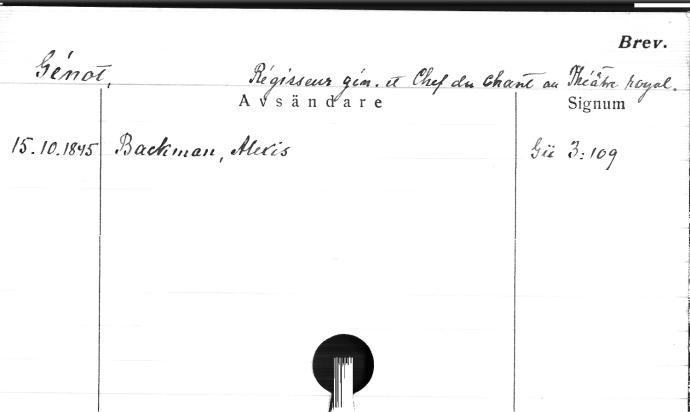 Brev.
Génot, Régisseur gén. et Chef du Chant au Théâtre royal.
Avsändare Signum
15.10.1845 Backman, Alexis Gü 3:109